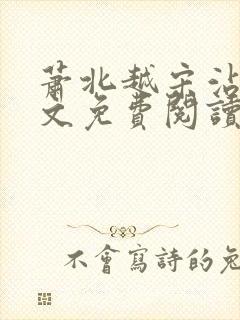 蕭北越宋沾
文免費閱讀
不會寫詩的兔